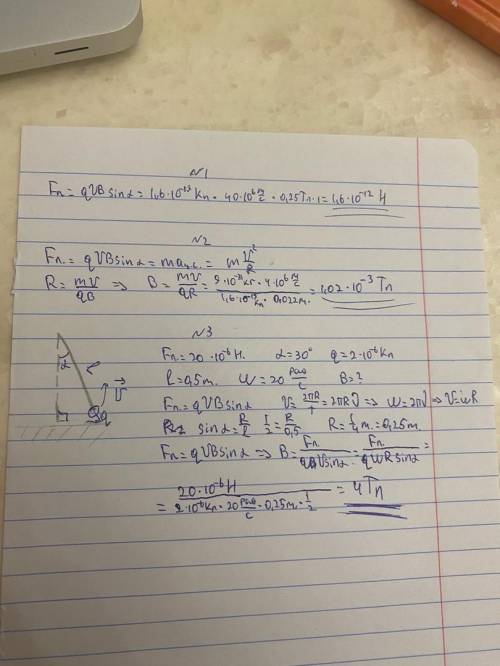 №1
Fл = qVB sinα = 1,6·10⁻¹⁹ Кл · 40·10⁶ м/с · 0,25Тл · 1 = 1,6·10⁻¹² Н
№2
Fл. = qVB sinα = maц.с. = m V²/R
R = mV/qB => B = mV/qR = 9·10⁻³¹ кг · 4·10⁶ м/с / 1,6·10⁻¹⁹ Кл · 0,022м. = 1,02·10⁻³ Тл
№3
Fл = 20·10⁻⁶ Н. α = 30° q = 2·10⁻⁶ Кл
l = 0,5м. W = 20 рад/с B = ?
Fл = qVB sinα V = 2πR/T = 2πRν => W = 2πν => V = WR
sinα = R/l 1/2 = R/0,5 R = 1/4 м. = 0,25м.
Fл = qVB sinα => B = Fл/qVsinα = Fл./qWR sinα =
= 20·10⁻⁶ Н / 2·10⁻⁶ Кл · 20 рад/с · 0,25м · 1/2 = 4 Тл
α
l
V
q